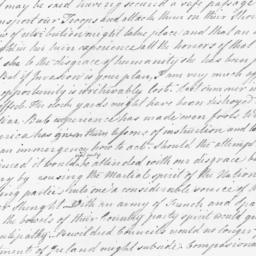 may be having secured a safe passage
transport our Troops and attack them in their Stron
of retribution might take place and that an a
in her turn experience all the honors of that
she to the disgrace of humanity she has been
But if Invasion is your plan, I am very much of
opportunity is irretrievably lost. last summer w
effect. The dock yards might have been destroyed
But experience has made wou fools wi
erica has given them lessons of instruction and to
an immergency how to act. Should the attempt
it would be attended with our disgrace b
by rousing the Martial spirit of the Nation
party. Pulteone a considerable source of
Strength. With an army of French and Spa
the bowels of their Country party spirit would
antipathy. Bewildered Councils would no longer
of Ireland might subside. Compassiona